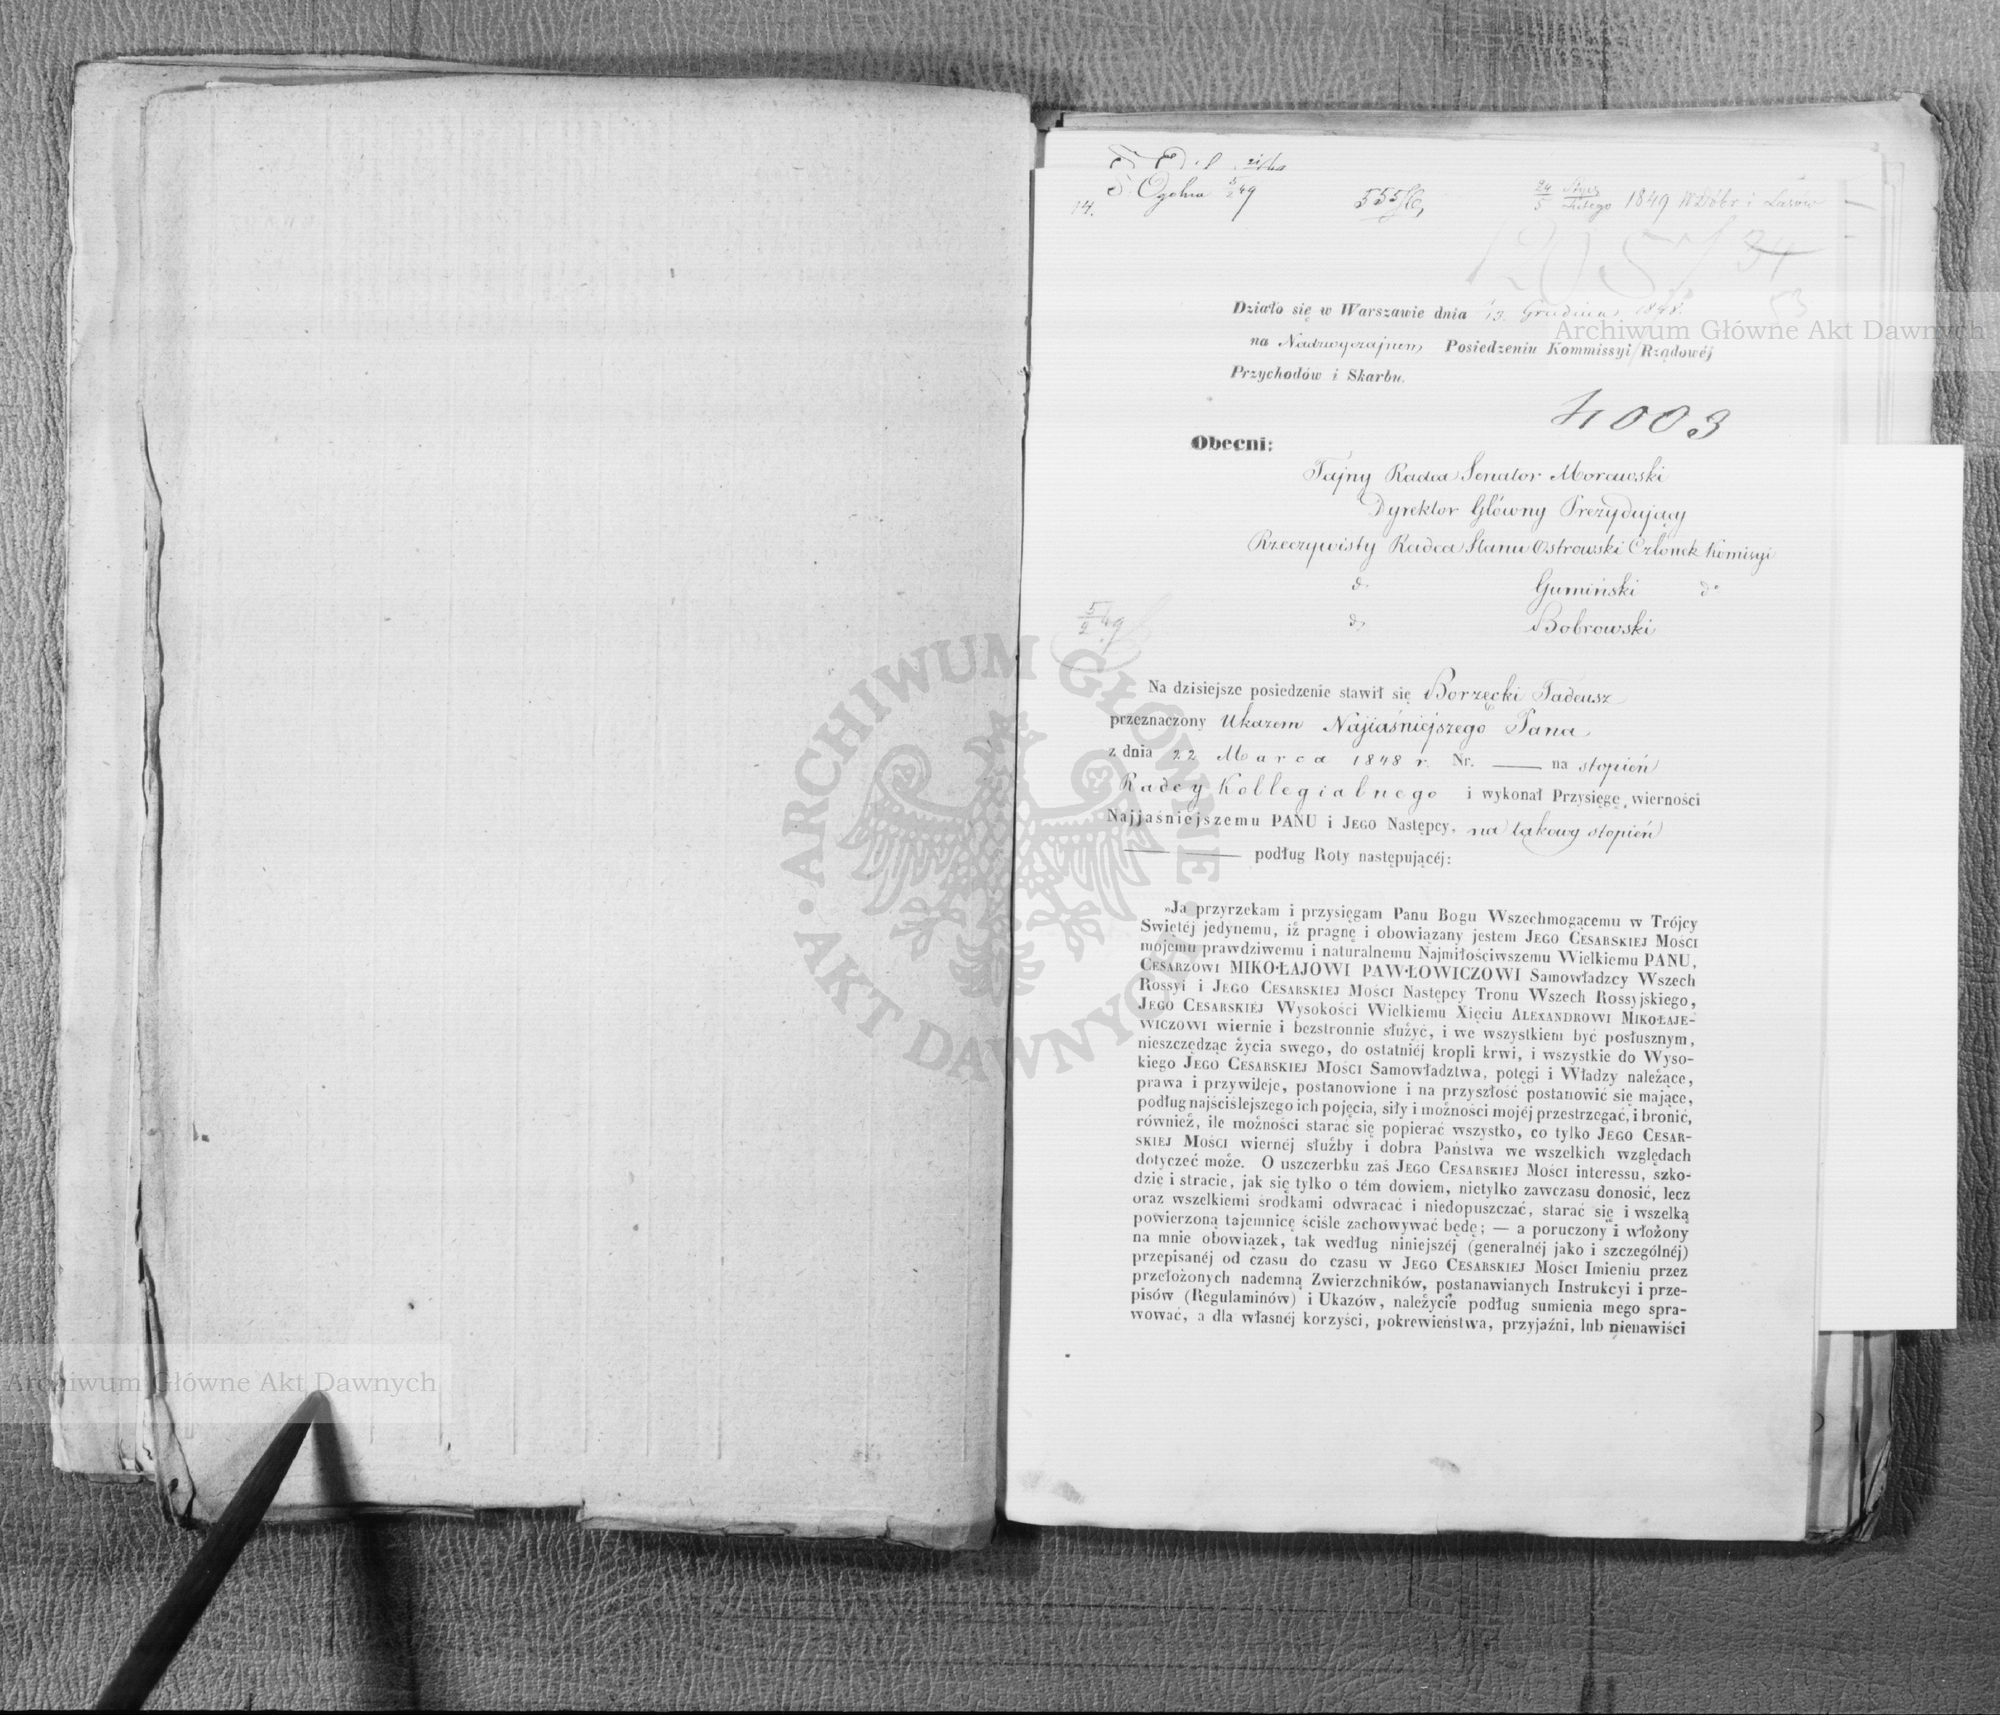 14.
49
24 Stycz
5 Lutego 1849 W Dóbr i Lasów
34
53
Działo się w Warszawie dnia 13 Grudnia 1848.
na Nadzwyczajnem Posiedzeniu Kommissyi Rządowéj
Przychodów i Skarbu.
4003
Obecni:
Tajny Radca Senator Morawski
Dyrektor Główny Prezydujący
Rzeczywisty Radca Stanu Ostrowski Członek Komisyi
do Gumiński do
do Bobrowski
5/2 49
Na dzisiejsze posiedzenie stawił się Borzęcki Tadeusz
przeznaczony Ukazem Najiaśniejszego Pana
z dnia 22 Marca 1848 r. Nr. —— na stopień
Radcy Kollegialnego i wykonał Przysięgę wierności
Najjaśniejszemu PANU i JEGO Następcy, na takowy stopień
—— —— podług Roty następującéj:
„Ja przyrzekam i przysięgam Panu Bogu Wszechmogącemu w Trójcy
Swiętéj jedynemu, iż pragnę i obowiązany jestem JEGO CESARSKIEJ MOŚCI
mojemu prawdziwemu i naturalnemu Najmiłościwszemu Wielkiemu PANU,
CESARZOWI MIKOŁAJOWI PAWŁOWICZOWI Samowładzcy Wszech
Rossyi i JEGO CESARSKIEJ MOŚCI Następcy Tronu Wszech Rossyjskiego,
JEGO CESARSKIEJ Wysokości Wielkiemu Xięciu ALEXANDROWI MIKOŁAJE-
WICZOWI wiernie i bezstronnie służyć, i we wszystkiem być posłusznym,
nieszczędząc życia swego, do ostatniéj kropli krwi, i wszystkie do Wyso-
kiego JEGO CESARSKIEJ MOŚCI Samowładztwa, potęgi i Władzy należące,
prawa i przywileje, postanowione i na przyszłość postanowić się mające,
podług najściślejszego ich pojęcia, siły i możności mojéj przestrzegać, i bronić,
również, ile możności starać się popierać wszystko, co tylko JEGO CESAR-
SKIEJ MOŚCI wiernéj służby i dobra Państwa we wszelkich względach
dotyczeć może. O uszczerbku zaś JEGO CESARSKIEJ MOŚCI interessu, szko-
dzie i stracie, jak się tylko o tém dowiem, nietylko zawczasu donosić, lecz
oraz wszelkiemi środkami odwracać i niedopuszczać, starać się i wszelką
powierzoną tajemnicę ściśle zachowywać będę; — a poruczony i włożony
na mnie obowiązek, tak według niniejszéj (generalnéj jako i szczególnéj)
przepisanéj od czasu do czasu w JEGO CESARSKIEJ MOŚCI Imieniu przez
przełożonych nademną Zwierzchników, postanawianych Instrukcyi i prze-
pisów (Regulaminów) i Ukazów, należycie podług sumienia mego spra-
wować, a dla własnéj korzyści, pokrewieństwa, przyjaźni, lub nienawiści
Archiwum Główne Akt Dawnych
Archiwum Główne Akt Dawnych
ARCHIWUM GŁÓWNE · AKT DAWNYCH ·